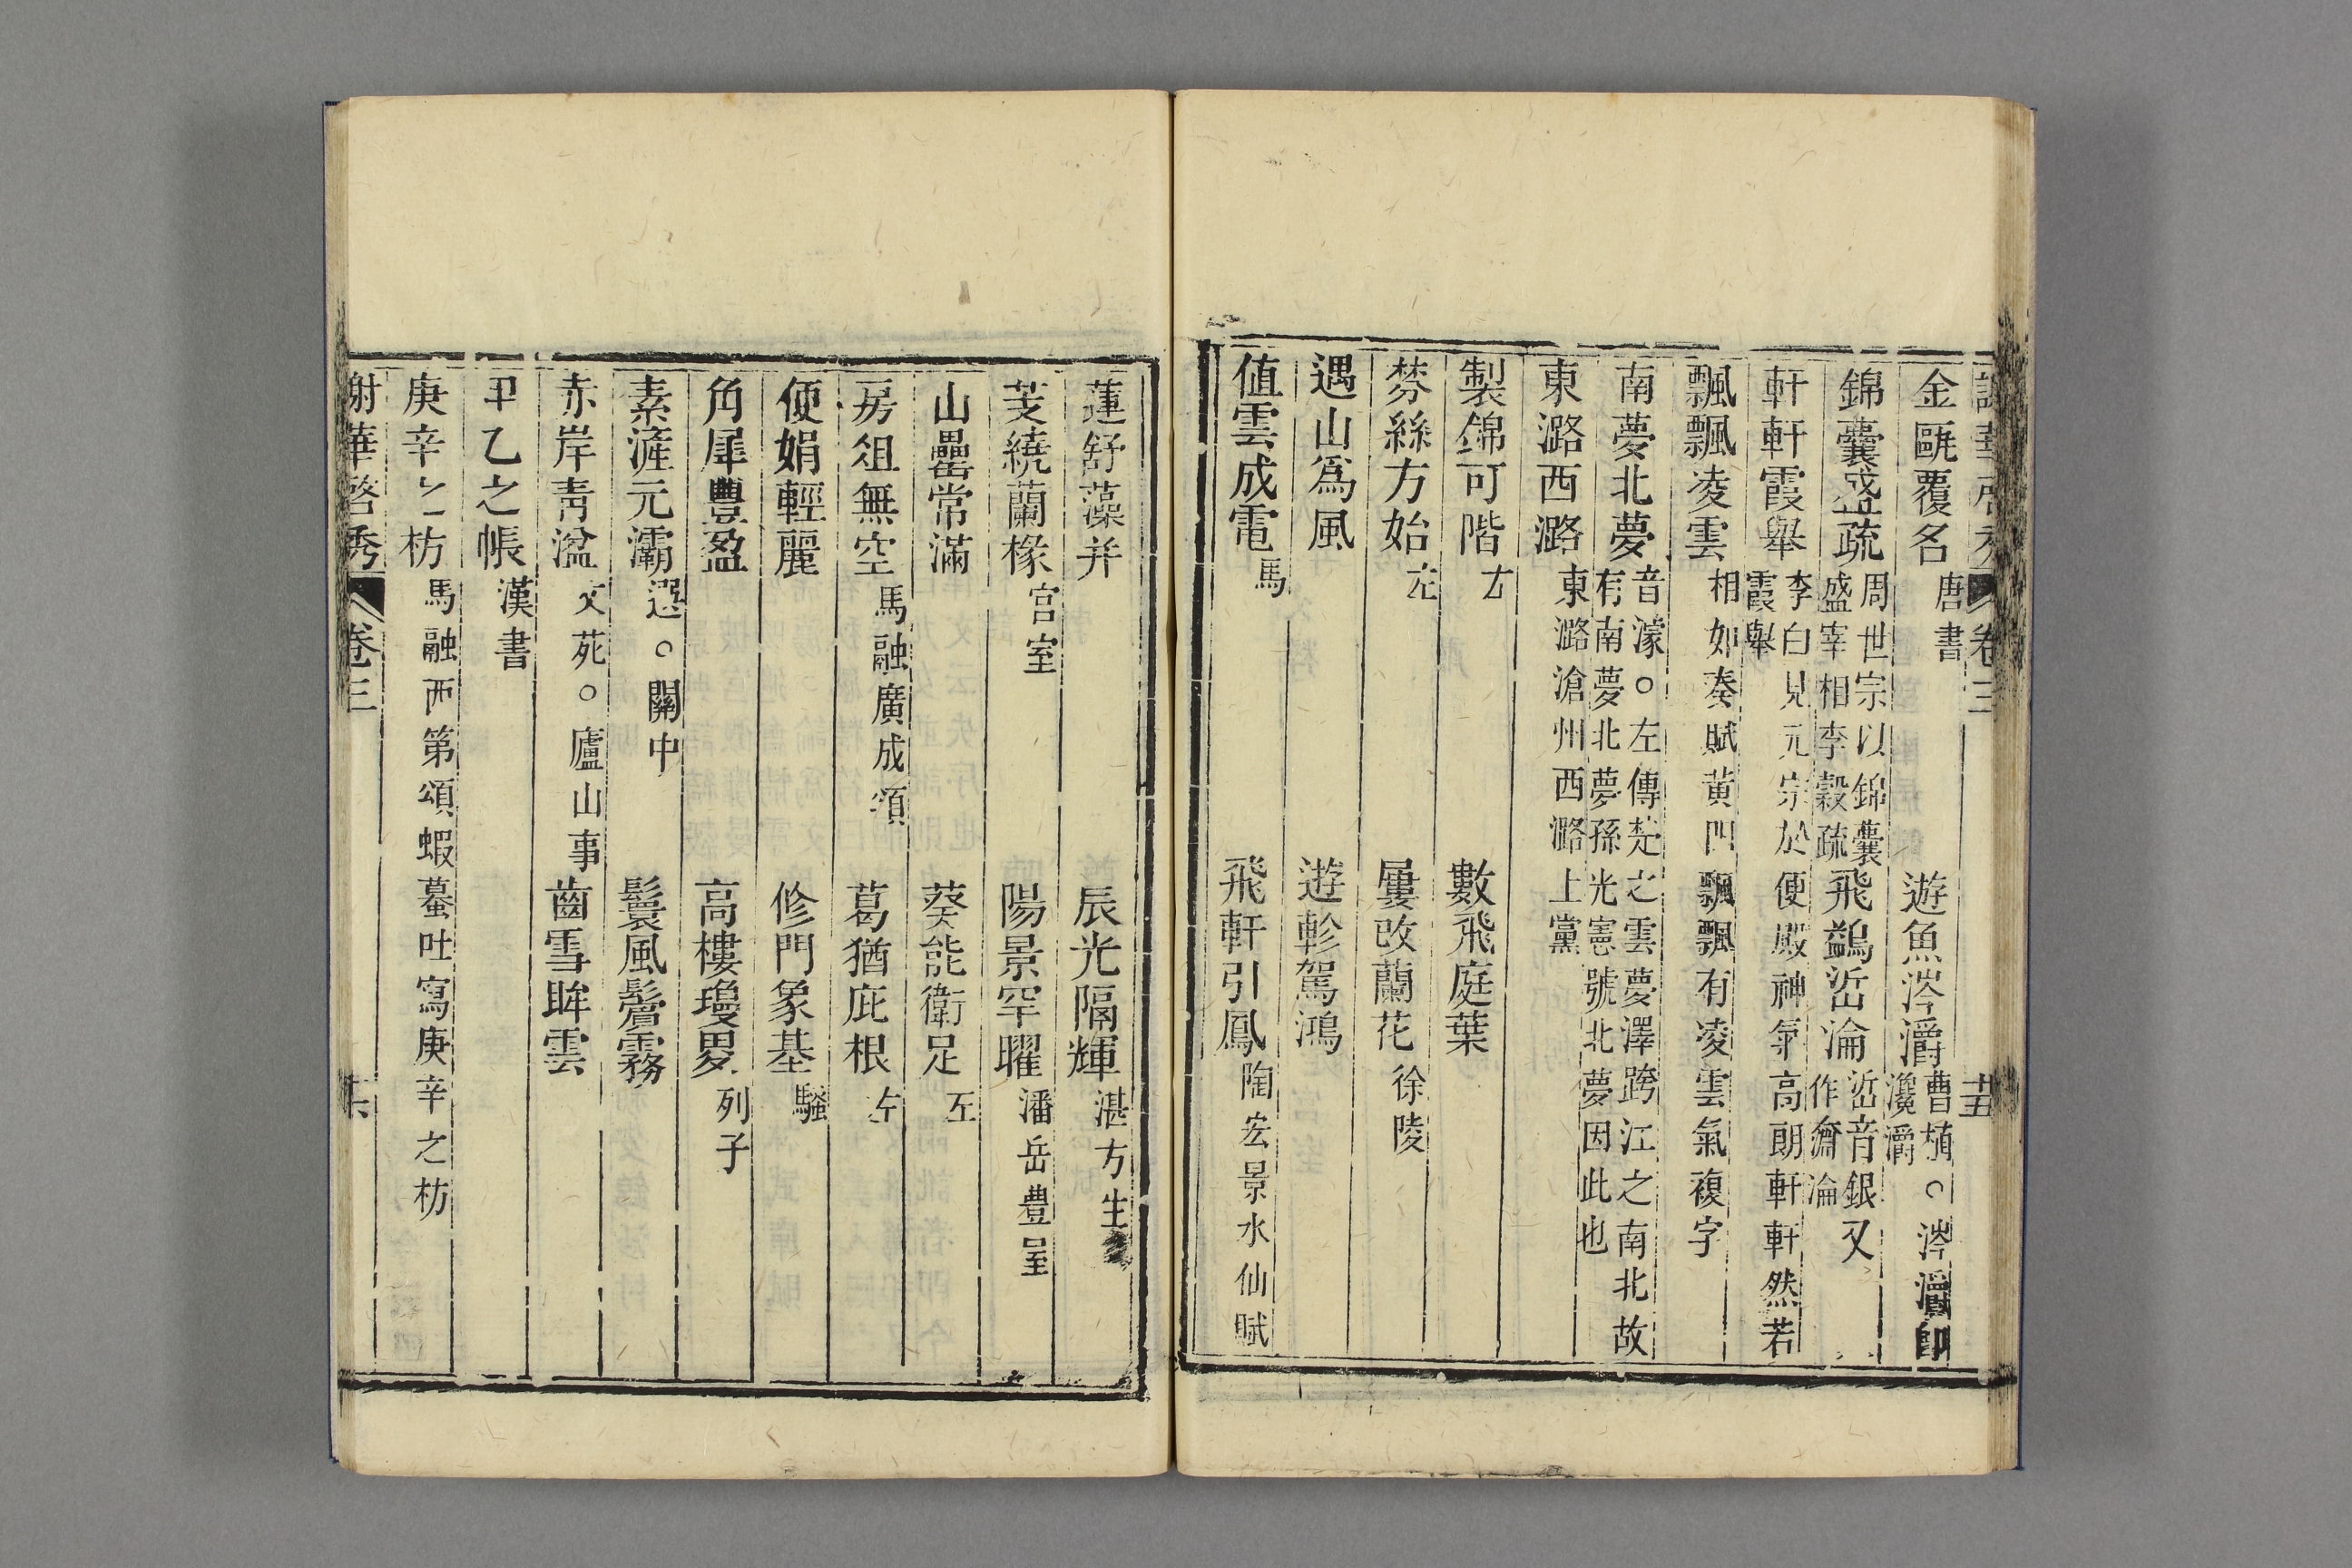 謝華啓秀 卷三 廿五
金甌覆名 唐書 遊魚涔灂 曹植○涔灂卽瀺灂
錦囊盛疏 周世宗以錦囊盛宰相李穀疏 飛鷁峾淪 峾音銀又作奫淪
軒軒霞舉 李白見元宗於便殿神氣高朗軒軒然若霞舉
飄飄凌雲 相如奏賦黄門飄飄有凌雲氣複字
南夢北夢 音濛○左傳楚之雲夢澤跨江之南北故有南夢北夢孫光憲號北夢因此也
東潞西潞 東潞滄州西潞上黨
製錦可階 左 數飛庭葉
棼絲方始 左 屢改蘭花 徐陵
遇山爲風 遊軫駕鴻
值雲成電 馬 飛軒引鳳 陶宏景水仙賦
蓮舒藻井 辰光隔輝 湛方生
芰繞蘭椽 宫室 陽景罕曜 潘岳
山罍常滿 葵能衛足 左
房俎無空 馬融廣成頌 葛猶庇根 左
便娟輕麗 修門象基 騷
角犀豐盈 高樓瓊㽪 列子
素滻元灞 選○關中 鬟風鬢霧
赤岸青湓 文苑○廬山事 齒雪眸雲
甲乙之帳 漢書
庚辛之枋 馬融西第頌蝦蟇吐寫庚辛之枋
謝華啓秀 卷三